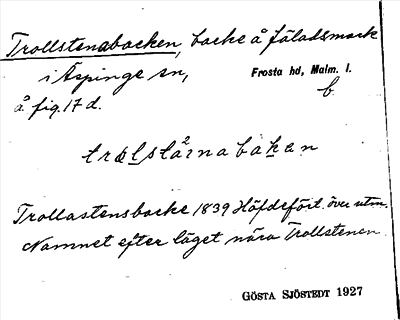 Trollstenabacken, backe å fäladsmark
i Äspinge sn, Frosta hd, Malm. l.
å fig. 17 d. b.
Trollastensbacke 1839 Höfdsfört. över utm.
Namnet efter läget nära Trollstenen
GÖSTA SJÖSTEDT 1927